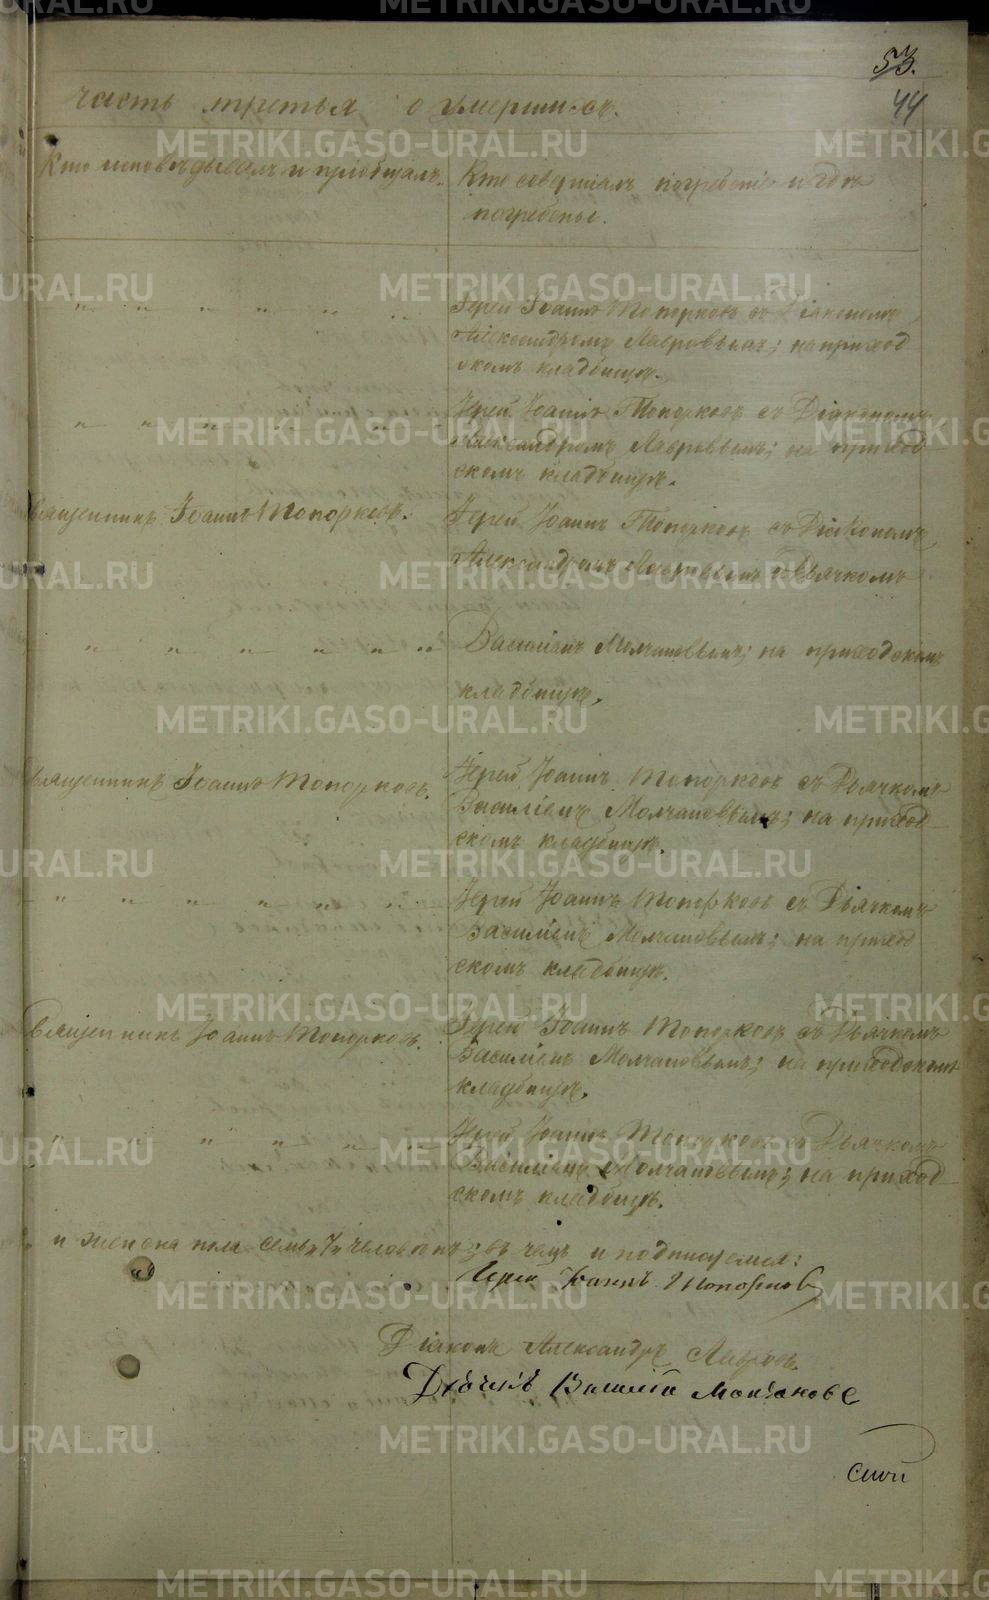 53.
44
часть третья о умершихъ.
Кто исповѣдывалъ и пріобщалъ.
Кто совершалъ погребеніе и гдѣ
погребены.
" " " " " "
Іерей Іоаннъ Топорковъ съ Діакономъ
Александромъ Лавровымъ; на приход
скомъ кладбищѣ.
" " " " " "
Іерей Іоаннъ Топорковъ съ Діакономъ
Александромъ Лавровымъ; на приход
скомъ кладбищѣ.
Священникъ Іоаннъ Топорковъ.
Іерей Іоаннъ Топорковъ съ Діакономъ
Александромъ Лавровымъ и Дьячкомъ
" " " " " "
Василіемъ Молчановымъ; на приходскомъ
кладбищѣ.
Священникъ Іоаннъ Топорковъ.
Іерей Іоаннъ Топорковъ съ Дьячкомъ
Василіемъ Молчановымъ; на приход
скомъ кладбищѣ.
" " " " " "
Іерей Іоаннъ Топорковъ съ Дьячкомъ
Василіемъ Молчановымъ; на приход
скомъ кладбищѣ.
Священникъ Іоаннъ Топорковъ.
Іерей Іоаннъ Топорковъ съ Дьячкомъ
Василіемъ Молчановымъ; на приходскомъ
кладбищѣ.
" " " " " "
Іерей Іоаннъ Топорковъ съ Дьячкомъ
Василіемъ Молчановымъ; на приход
скомъ кладбищѣ.
и женска пола семь "7" человѣкъ; въ чемъ и подписуемся:
Іерей Іоаннъ Топорковъ
Діаконъ Александръ Лавровъ.
Дьячекъ Василій Молчановъ
METRIKI.GASO-URAL.RU